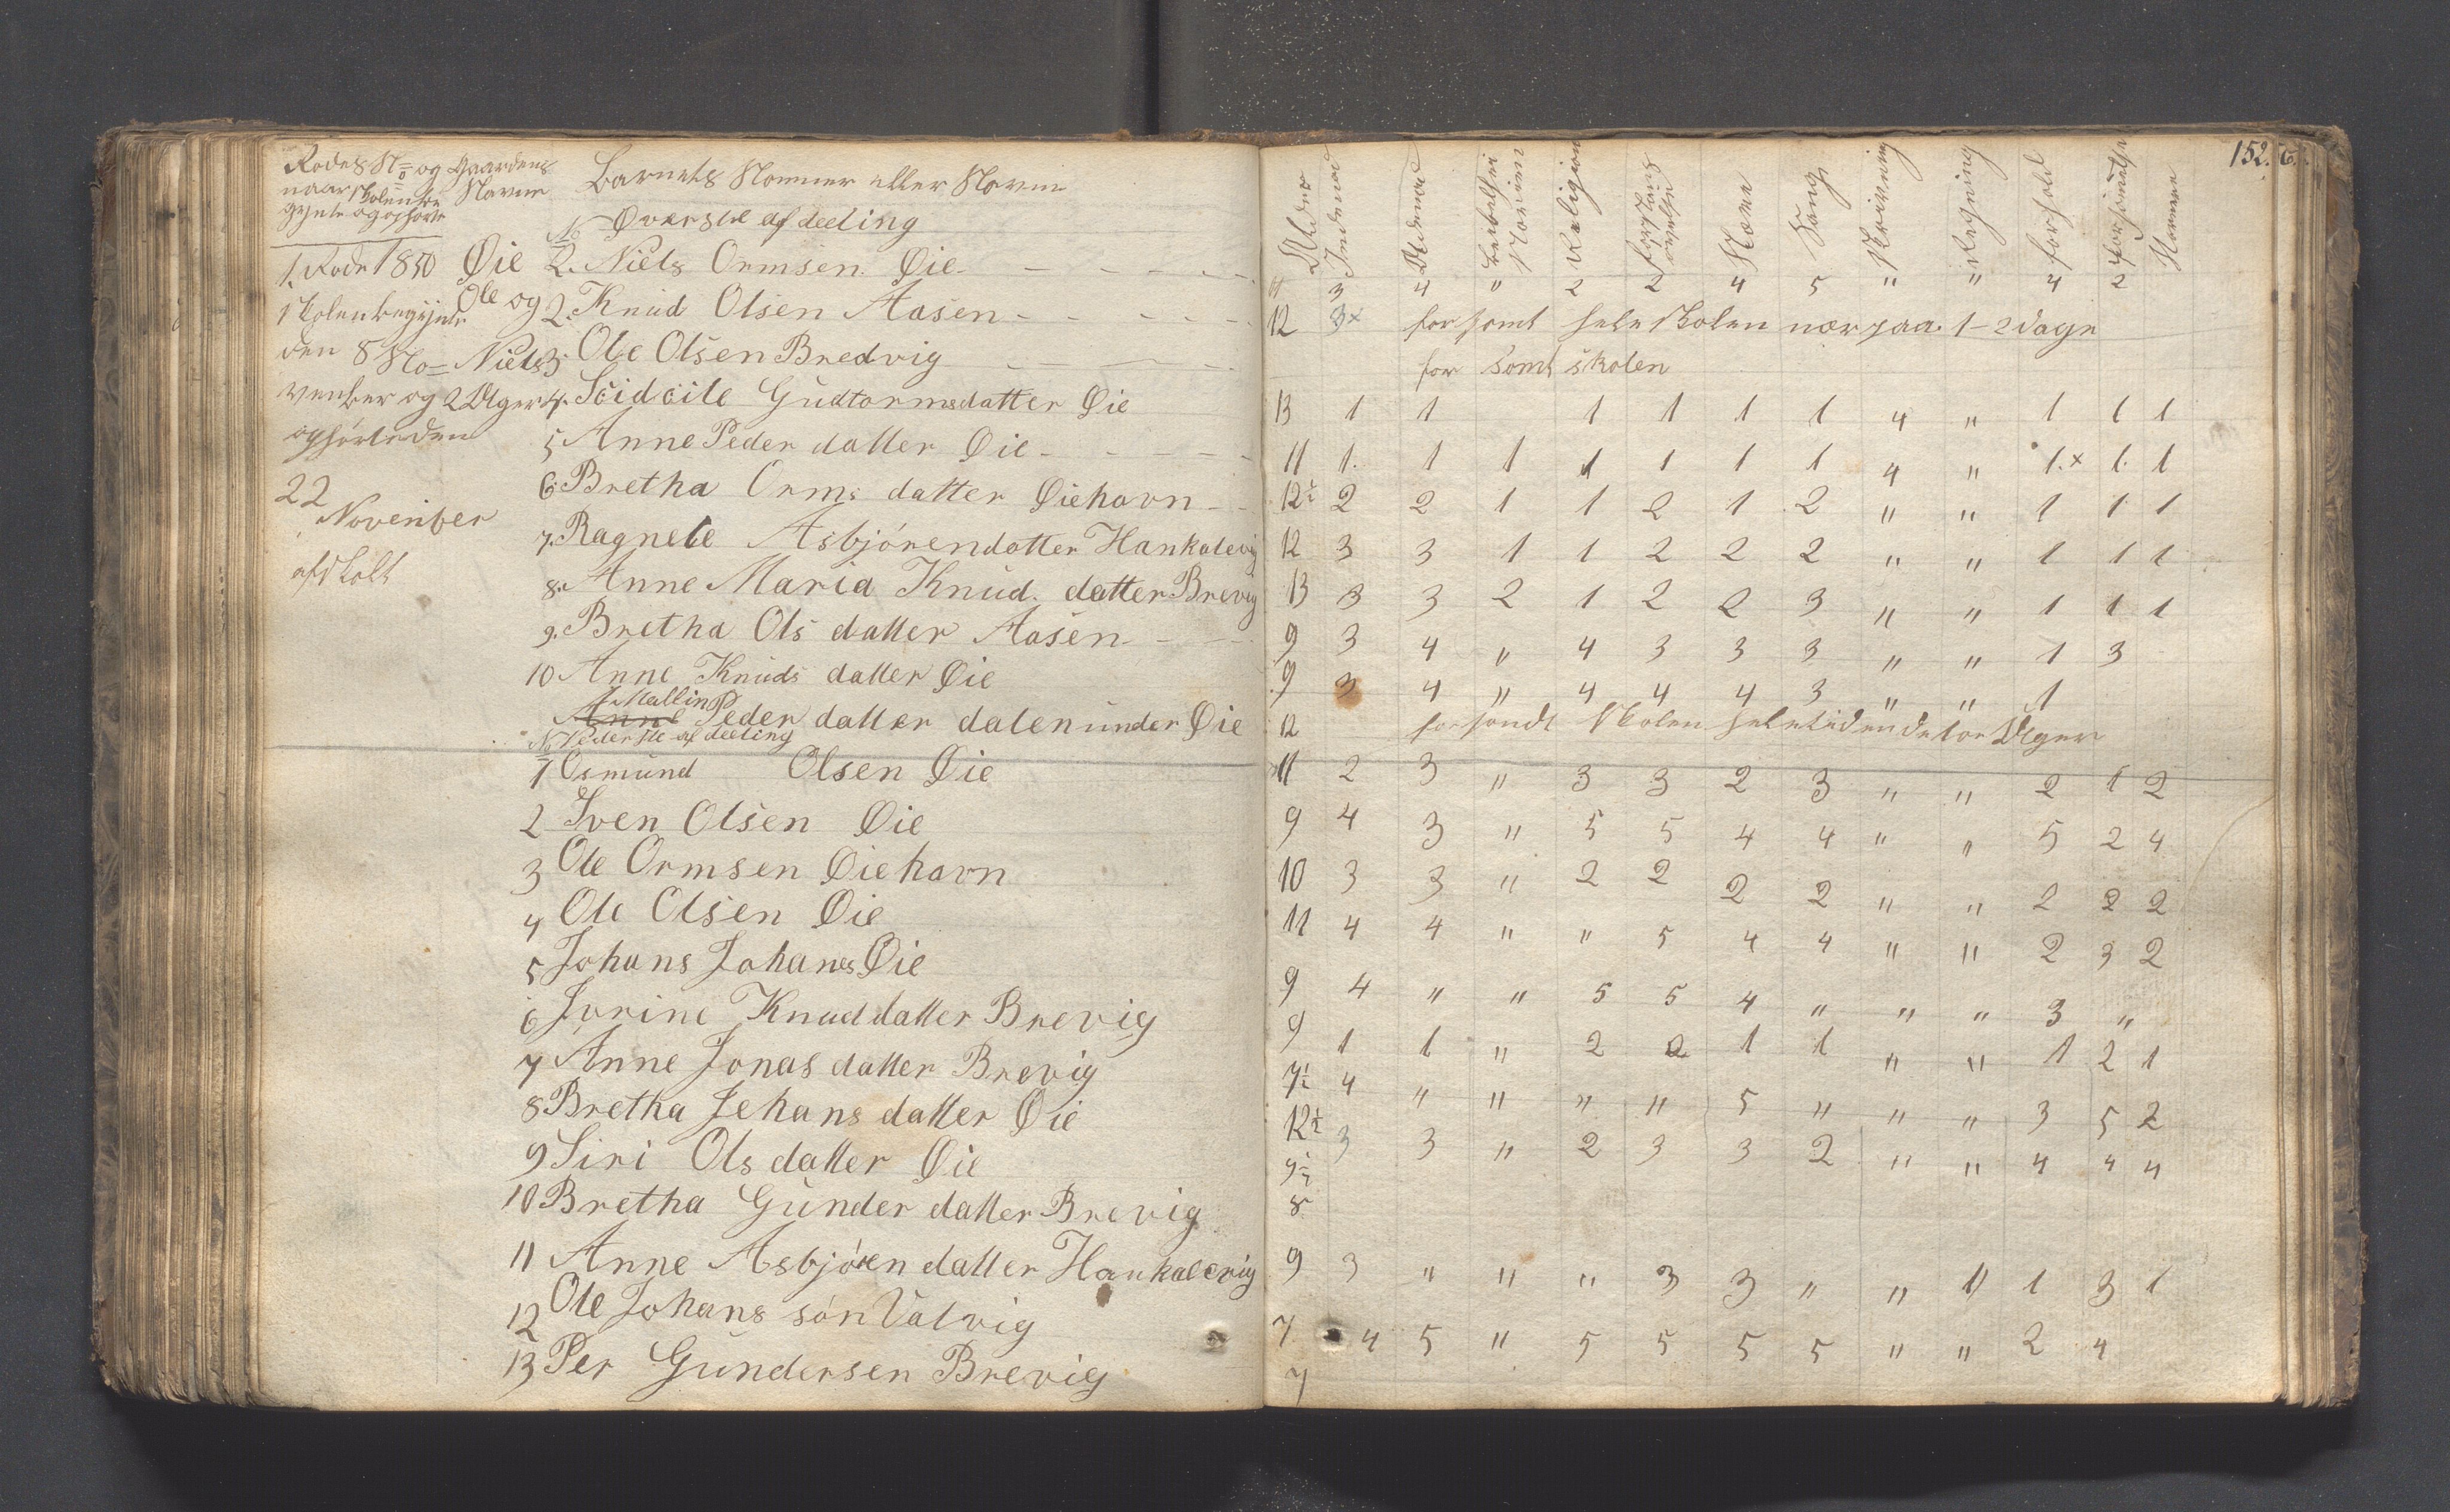 Rodes No og Gaardens
naar Skolen be Navne
gynte og ophørte
Barnets Nommer eller Navne
No Øverste af deeling
1. Rode 1850 Øie 2. Niels Ormsen Øie - - - - -
skolen begyntte Ole og 2. Knud Olsen Aasen - - - - -
den 8 No= Niels 3. Ole Olsen Bredvig
vember og 2 Uger 4. Gudtormsdatter Øie
ophørte den 5 Anne Peder datter Øie - - - - -
22 6. Bretha Orms datter Øiehavn - -
November
7. Ragnele Asbjørendatter Hankalevig
afholt
8. Anne Maria Knud. datter Brevig
9. Bretha Ols datter Aasen - - -
10 Anne Knuds datter Øie
Mallin
Anne Peder datter dalen under Øie
No Nederste af deeling
1 Osmund Olsen Øie
2 Sven Olsen Øie
3 Ole Ormsen Øiehavn
4 Ole Olsen Øie
5 Johans Johanes Øie
6 Jorine Knud datter Brevig
7 Anne Jonas datter Brevig
8 Bretha Johans datter Øie
9 Siri Ols datter Øie
10 Bretha Gunder datter Brevig
11 Anne Asbjøren datter Hankalevig
12 Ole Johans søn Valvig
13 Per Gundersen Brevig
152.
Alder
Indenad
Udenad
Religion
Sang
Skrivning
Regning
Forhold
11 3 4 " 2 2 4 5 " " 4 2
12 3x forsømt hele skolen nær paa 1-2 dage
forsømt skolen
13 1 1 1 1 1 1 4 " 1 1 1
11 1. 1 1 1 1 1 1 4 " 1.x 1. 1
12½ 2 2 1 1 2 1 2 " " 1 1 1
12 3 3 1 1 2 2 2 " " 1 1 1
13 3 3 2 1 2 2 3 " " 1 1 1
9 3 4 " 4 3 3 3 " " 1 3
9 3 4 " 4 4 4 3 " " 1
12 forsømdt skolen hele tiden de toe Uger
11 2 3 " 3 3 2 3 " " 2 1 2
9 4 3 " 5 5 4 4 " " 5 2 4
10 3 3 " 2 2 2 2 " " 2 2 2
11 4 4 " " 5 4 4 " " 2 3 2
9 4 " " 5 5 4 " " " 3 "
9 1 1 " 2 2 1 1 " " 1 2 1
7½ 4 " " " " 5 " " " 3 5 2
12½ 3 3 " 2 3 3 2 " " 4 4 4
9½
8
9 3 " " " 3 3 " " " 1 3 1
7 4 5 " 5 5 5 5 " " 2 4
7